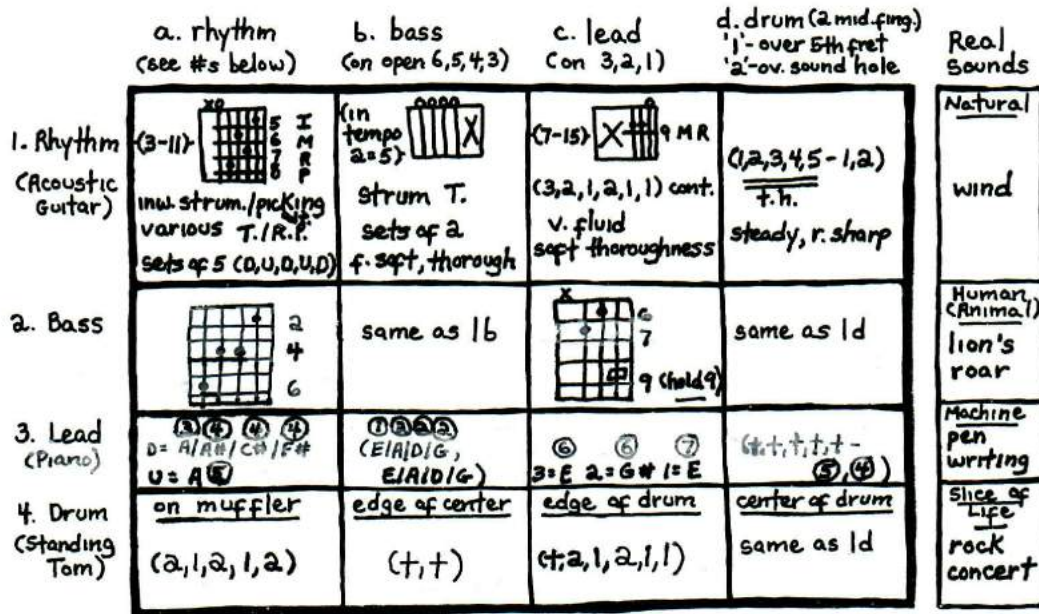 a. rhythm
(see #s below)
b. bass
(on open 6,5,4,3)
c. lead
(on 3,2,1)
d. drum (2 mid. fing.)
'1'- over 5th fret
'2'- ov. sound hole
Real
Sounds
1. Rhythm
(Acoustic
Guitar)
(3-11)
xo
5 I
6 M
7 R
8 P
inw. strum./picking
various T./R.P.
sets of 5 (D,U,D,U,D)
(in
tempo
2=5)
oooo
X
strum T.
sets of 2
f. soft, thorough
(7-15)
o
X
9 MR
(3,2,1,2,1,1) cont.
v. fluid
soft thoroughness
(1,2,3,4,5 - 1,2)
t.h.
steady, r. sharp
Natural
wind
2. Bass
2
4
6
same as 1b
x
6
7
9 (hold 9)
same as 1d
Human
(Animal)
lion's
roar
3. Lead
(Piano)
D = A/A#/C#/F#
U = A 5
1 2 2 2
(E/A/D/G,
E/A/D/G)
6 6 7
3=E 2=G# 1=E
5, 4)
Machine
pen
writing
4. Drum
(Standing
Tom)
on muffler
(2,1,2,1,2)
edge of center
(t,t)
edge of drum
(t,2,1,2,1,1)
center of drum
same as 1d
Slice of
Life
rock
concert